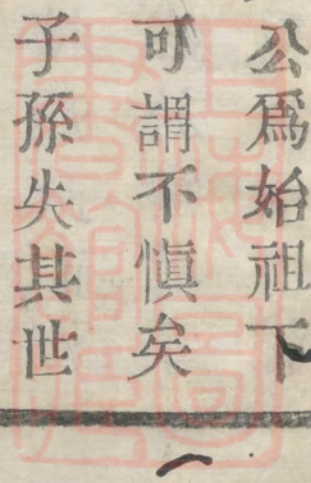 公爲始祖下
可謂不慎矣
子孫失其世